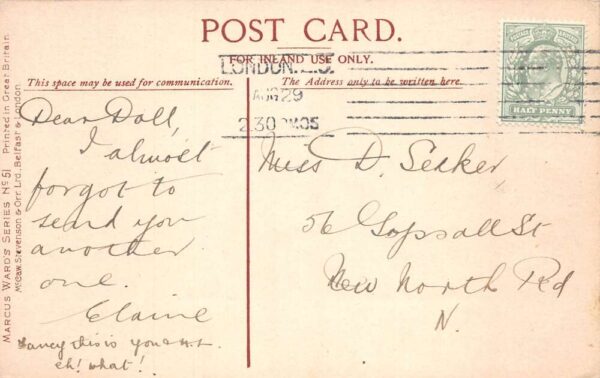 POST CARD.
FOR INLAND USE ONLY.
This space may be used for communication.
The Address only to be written here.
LONDON
AUG 29
2.30 PM 05
HALF PENNY
Dear Doll,
I almost
forgot to
send you
another
one.
Elaine
Fancy this is you &
eh! what!
Miss D. Seaker
56 Gopsall St
New North Rd
N.
MARCUS WARD'S SERIES No 51 Printed in Great Britain.
McCaw, Stevenson & Orr Ltd, Belfast & London.